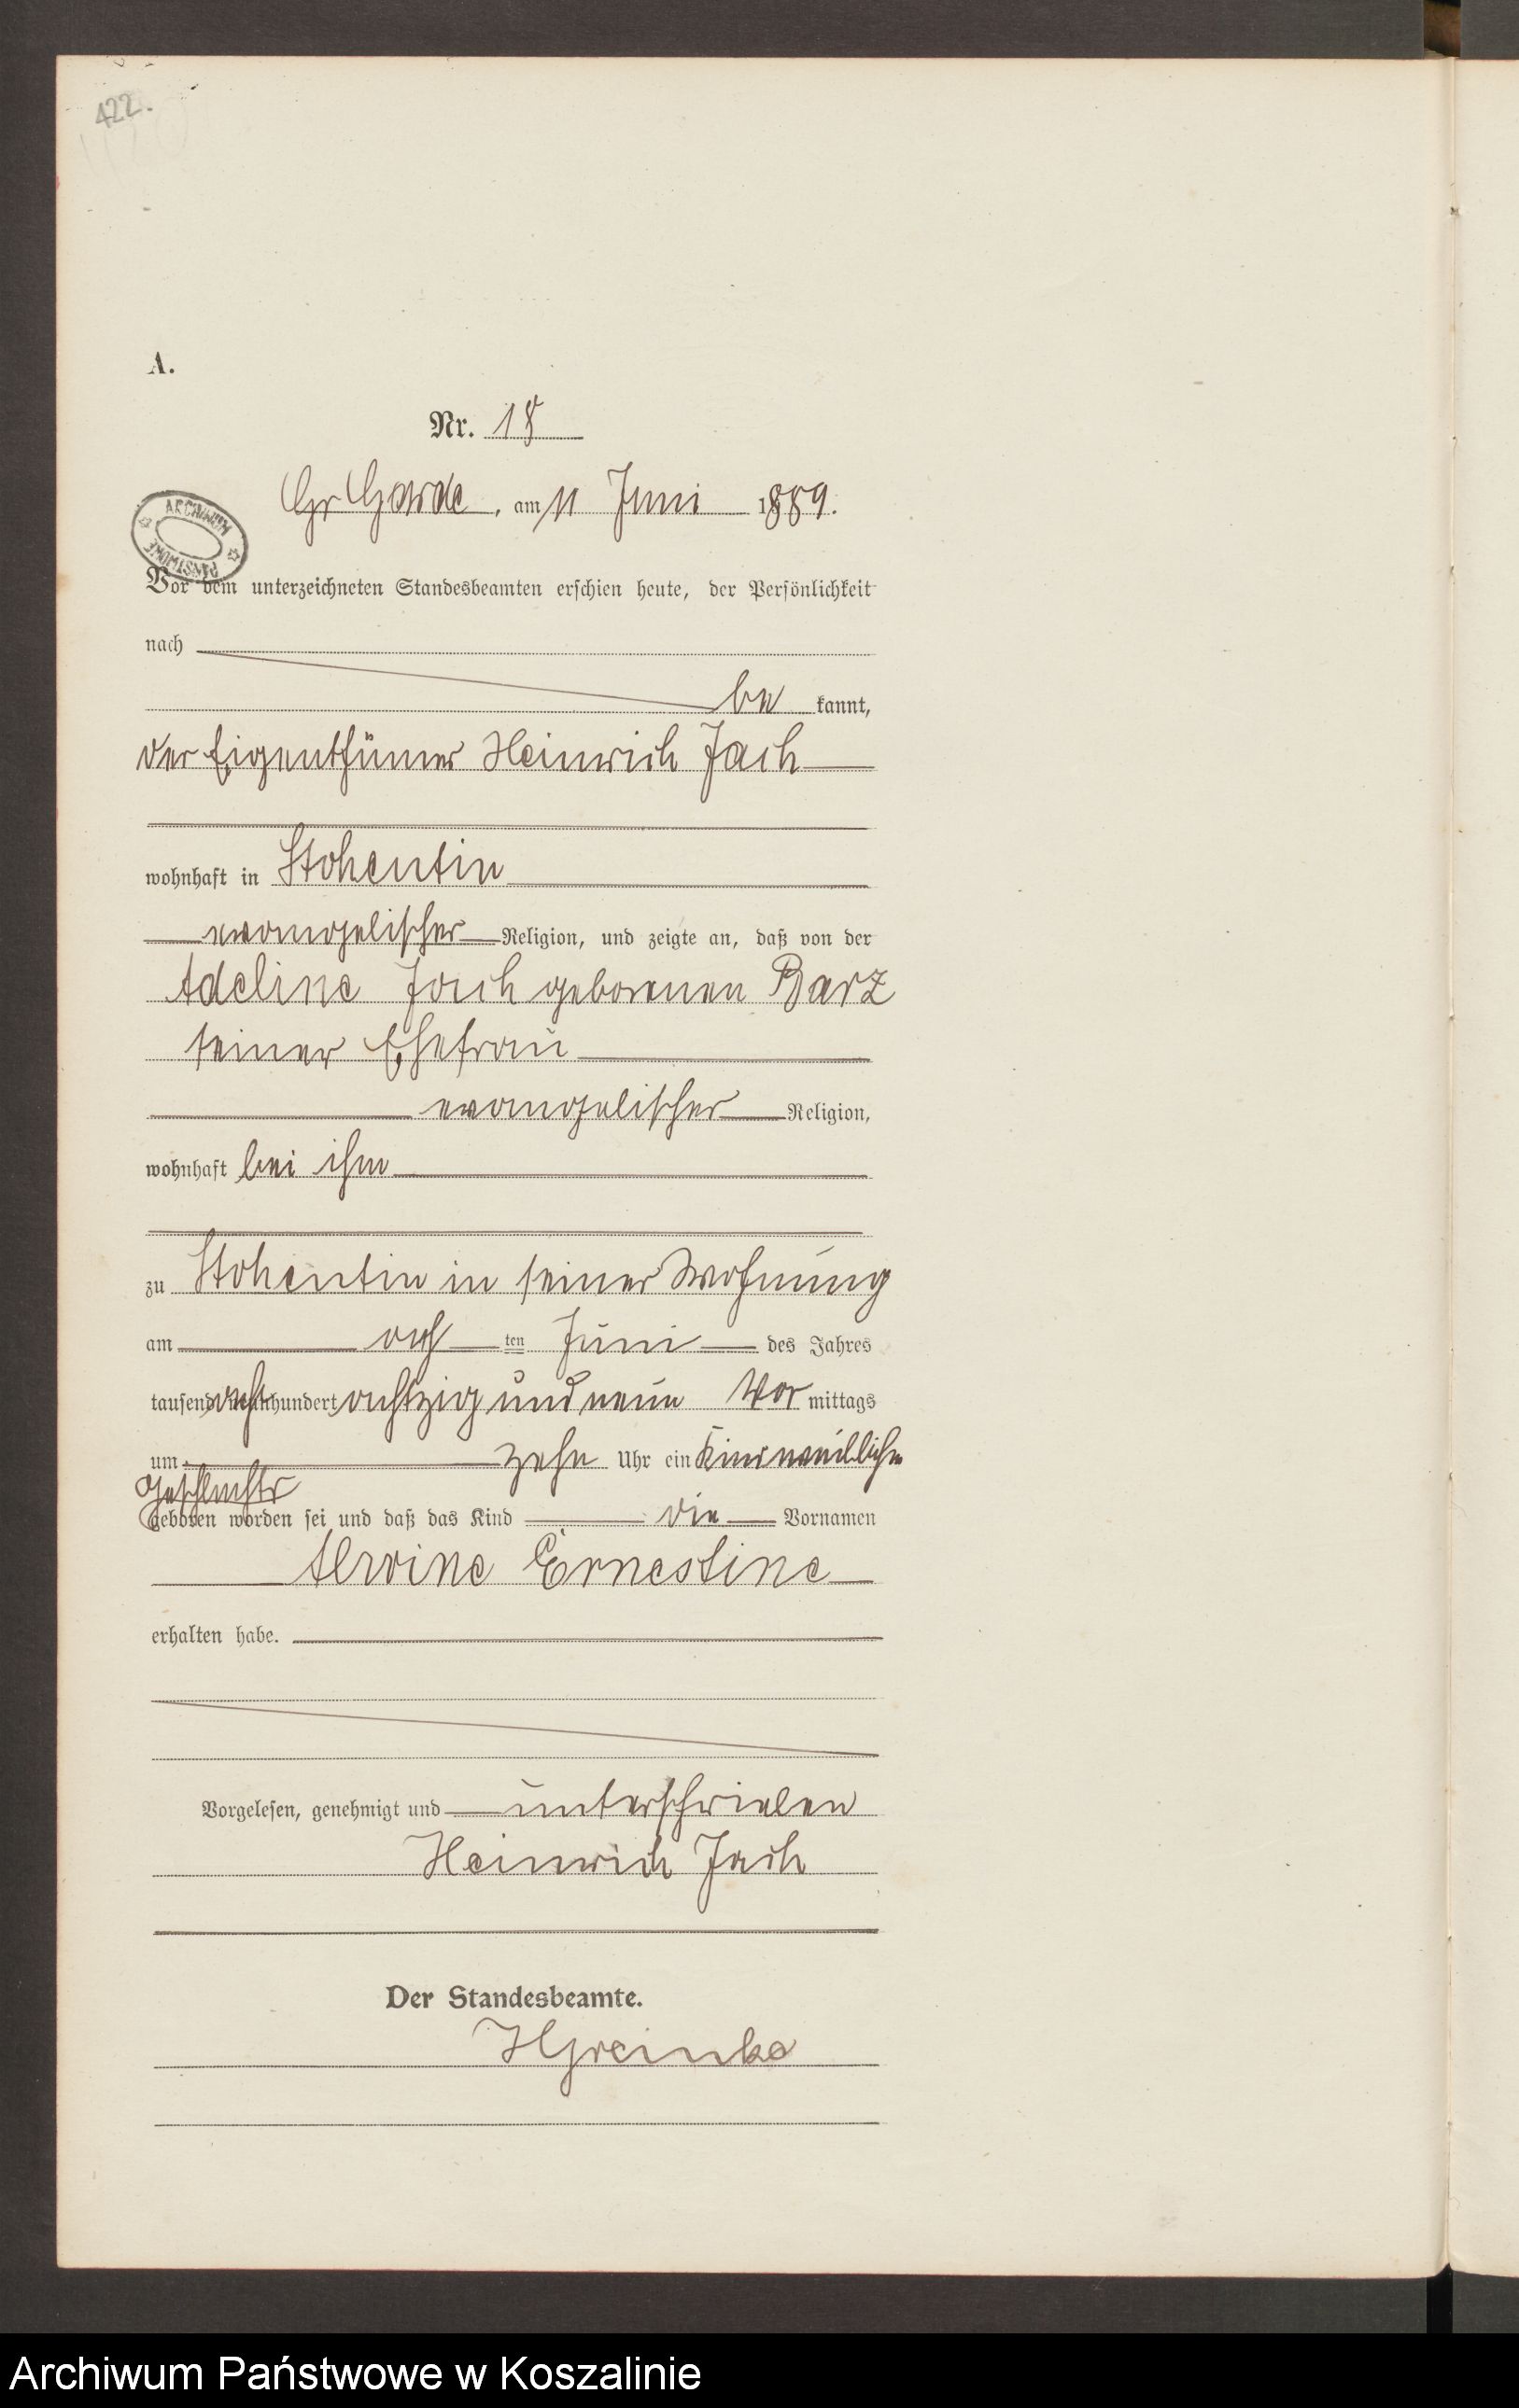 422.
A.
Nr. 18
ARCHIWUM PAŃSTWOWE
Gr Garde, am 11 Juni 1889.
Vor dem unterzeichneten Standesbeamten erschien heute, der Persönlichkeit
nach
be kannt,
der Eigenthümer Heinrich Jach
wohnhaft in Stohentin
evangelischer Religion, und zeigte an, daß von der
Adeline Jach geborenen Barz
seiner Ehefrau
evangelischer Religion,
wohnhaft bei ihm
zu Stohentin in seiner Wohnung
am ach ten Juni des Jahres
tausend acht hundert achtzig und neun Vor mittags
um zehn Uhr ein Kind weiblichen
Geschlechts
geboren worden sei und daß das Kind die Vornamen
Alwine Ernestine
erhalten habe.
Vorgelesen, genehmigt und unterschrieben
Heinrich Jach
Der Standesbeamte.
Archiwum Państwowe w Koszalinie